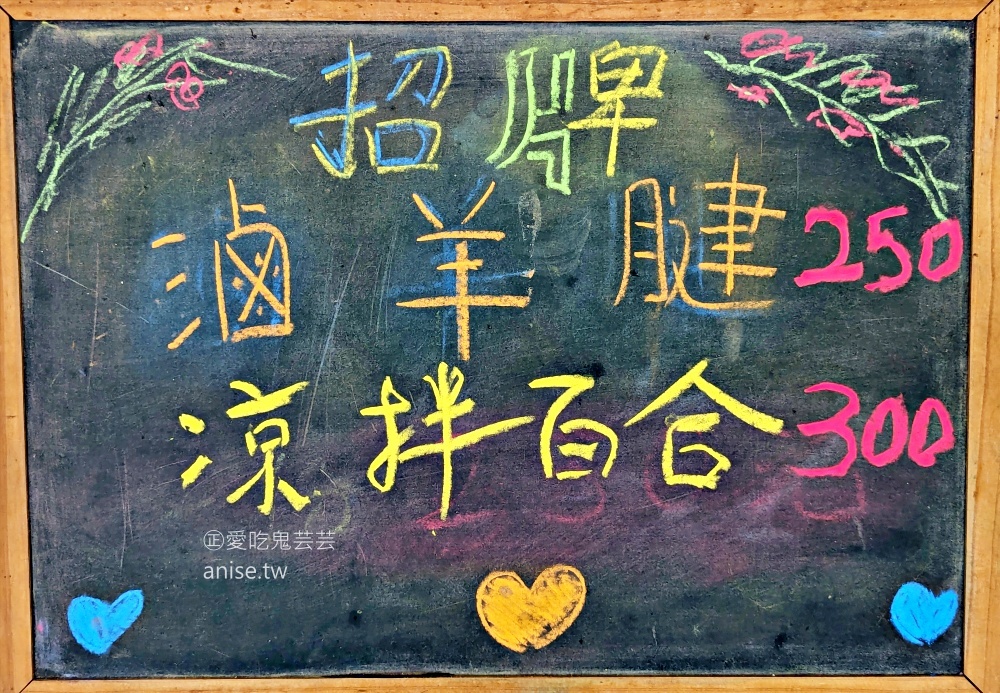 招牌
滷羊腱 250
涼拌百合 300
㊣愛吃鬼芸芸
anise.tw